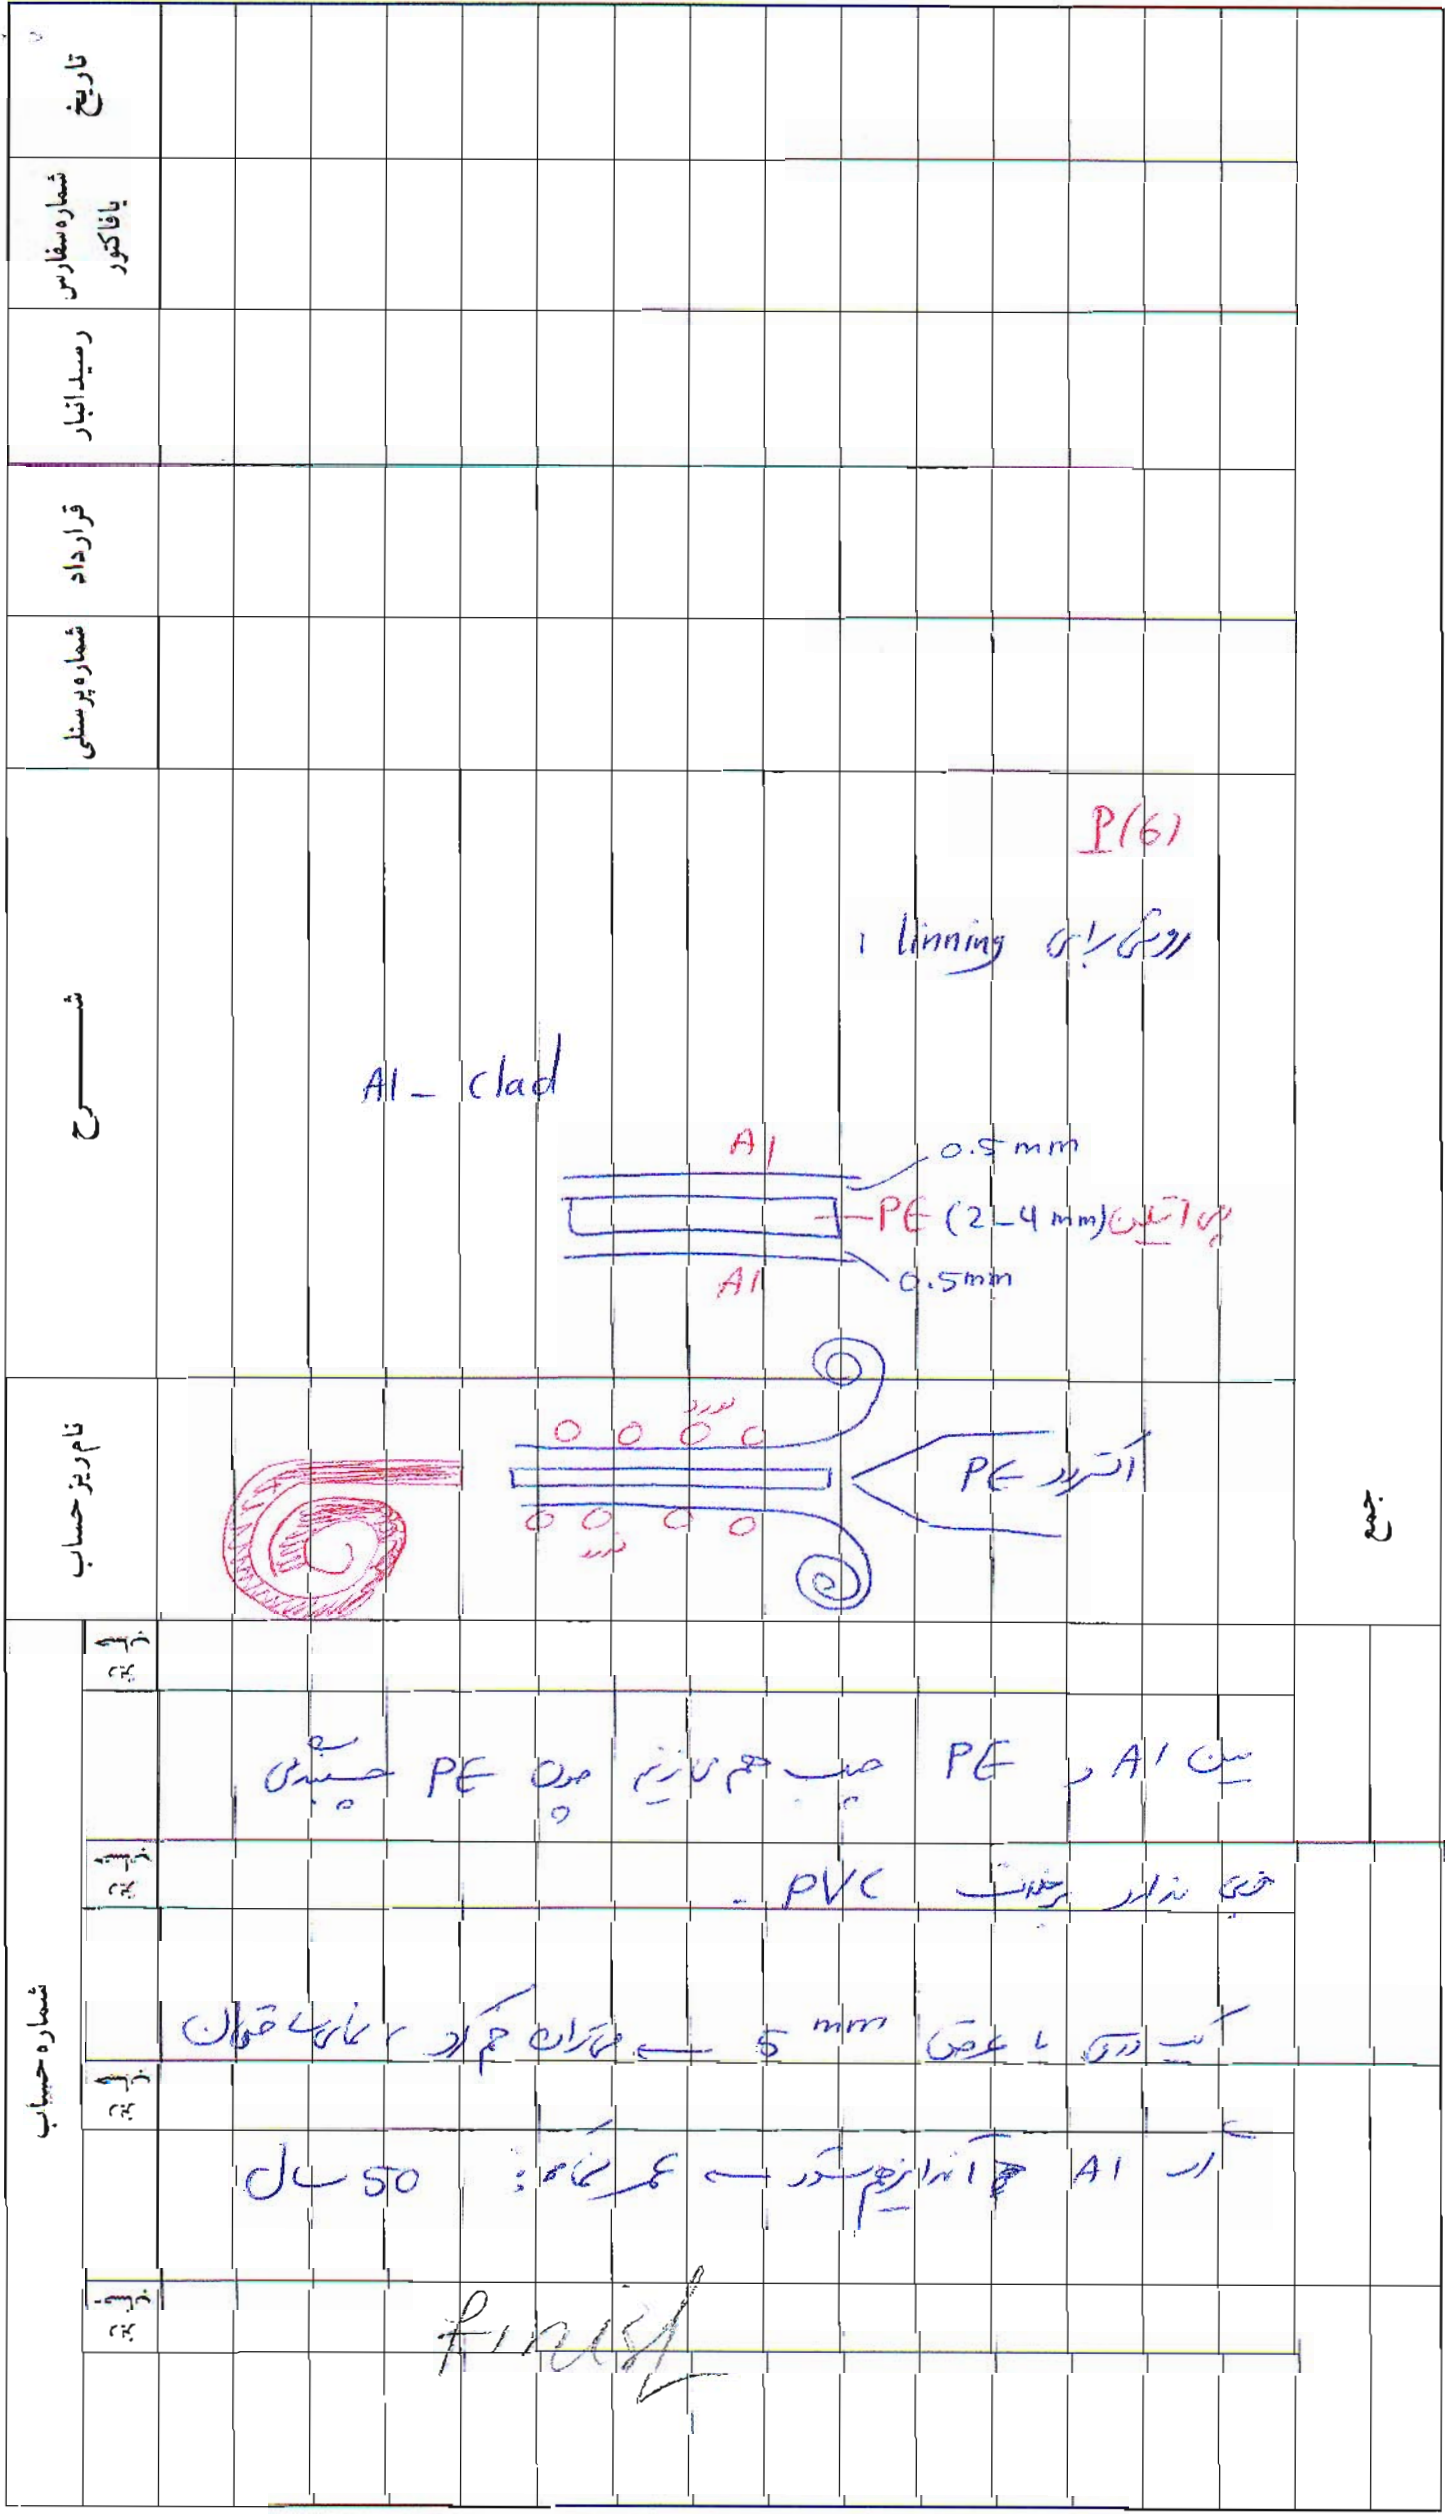 تاریخ
شماره سفارس
یا فاکتور
رسید انبار
قرارداد
شماره پرسنلی
شــــرح
نام ریز حساب
شماره حساب
جمع
P(6)
روشی برای linning :
Al - clad
Al
0.5 mm
PE (2-4 mm) پلی اتیلن
0.5mm
Al
نورد
اکسترود PE
نورد
بین Al و PE چسب هم می زنند چون PE چسبندگی
خوبی ندارد برخلاف PVC.
یک ورق با عرض 5 mm ← می توان خم کرد نمای ساختمان
اگر Al آندایز هم شود ← عمر نما: 50 سال
finish